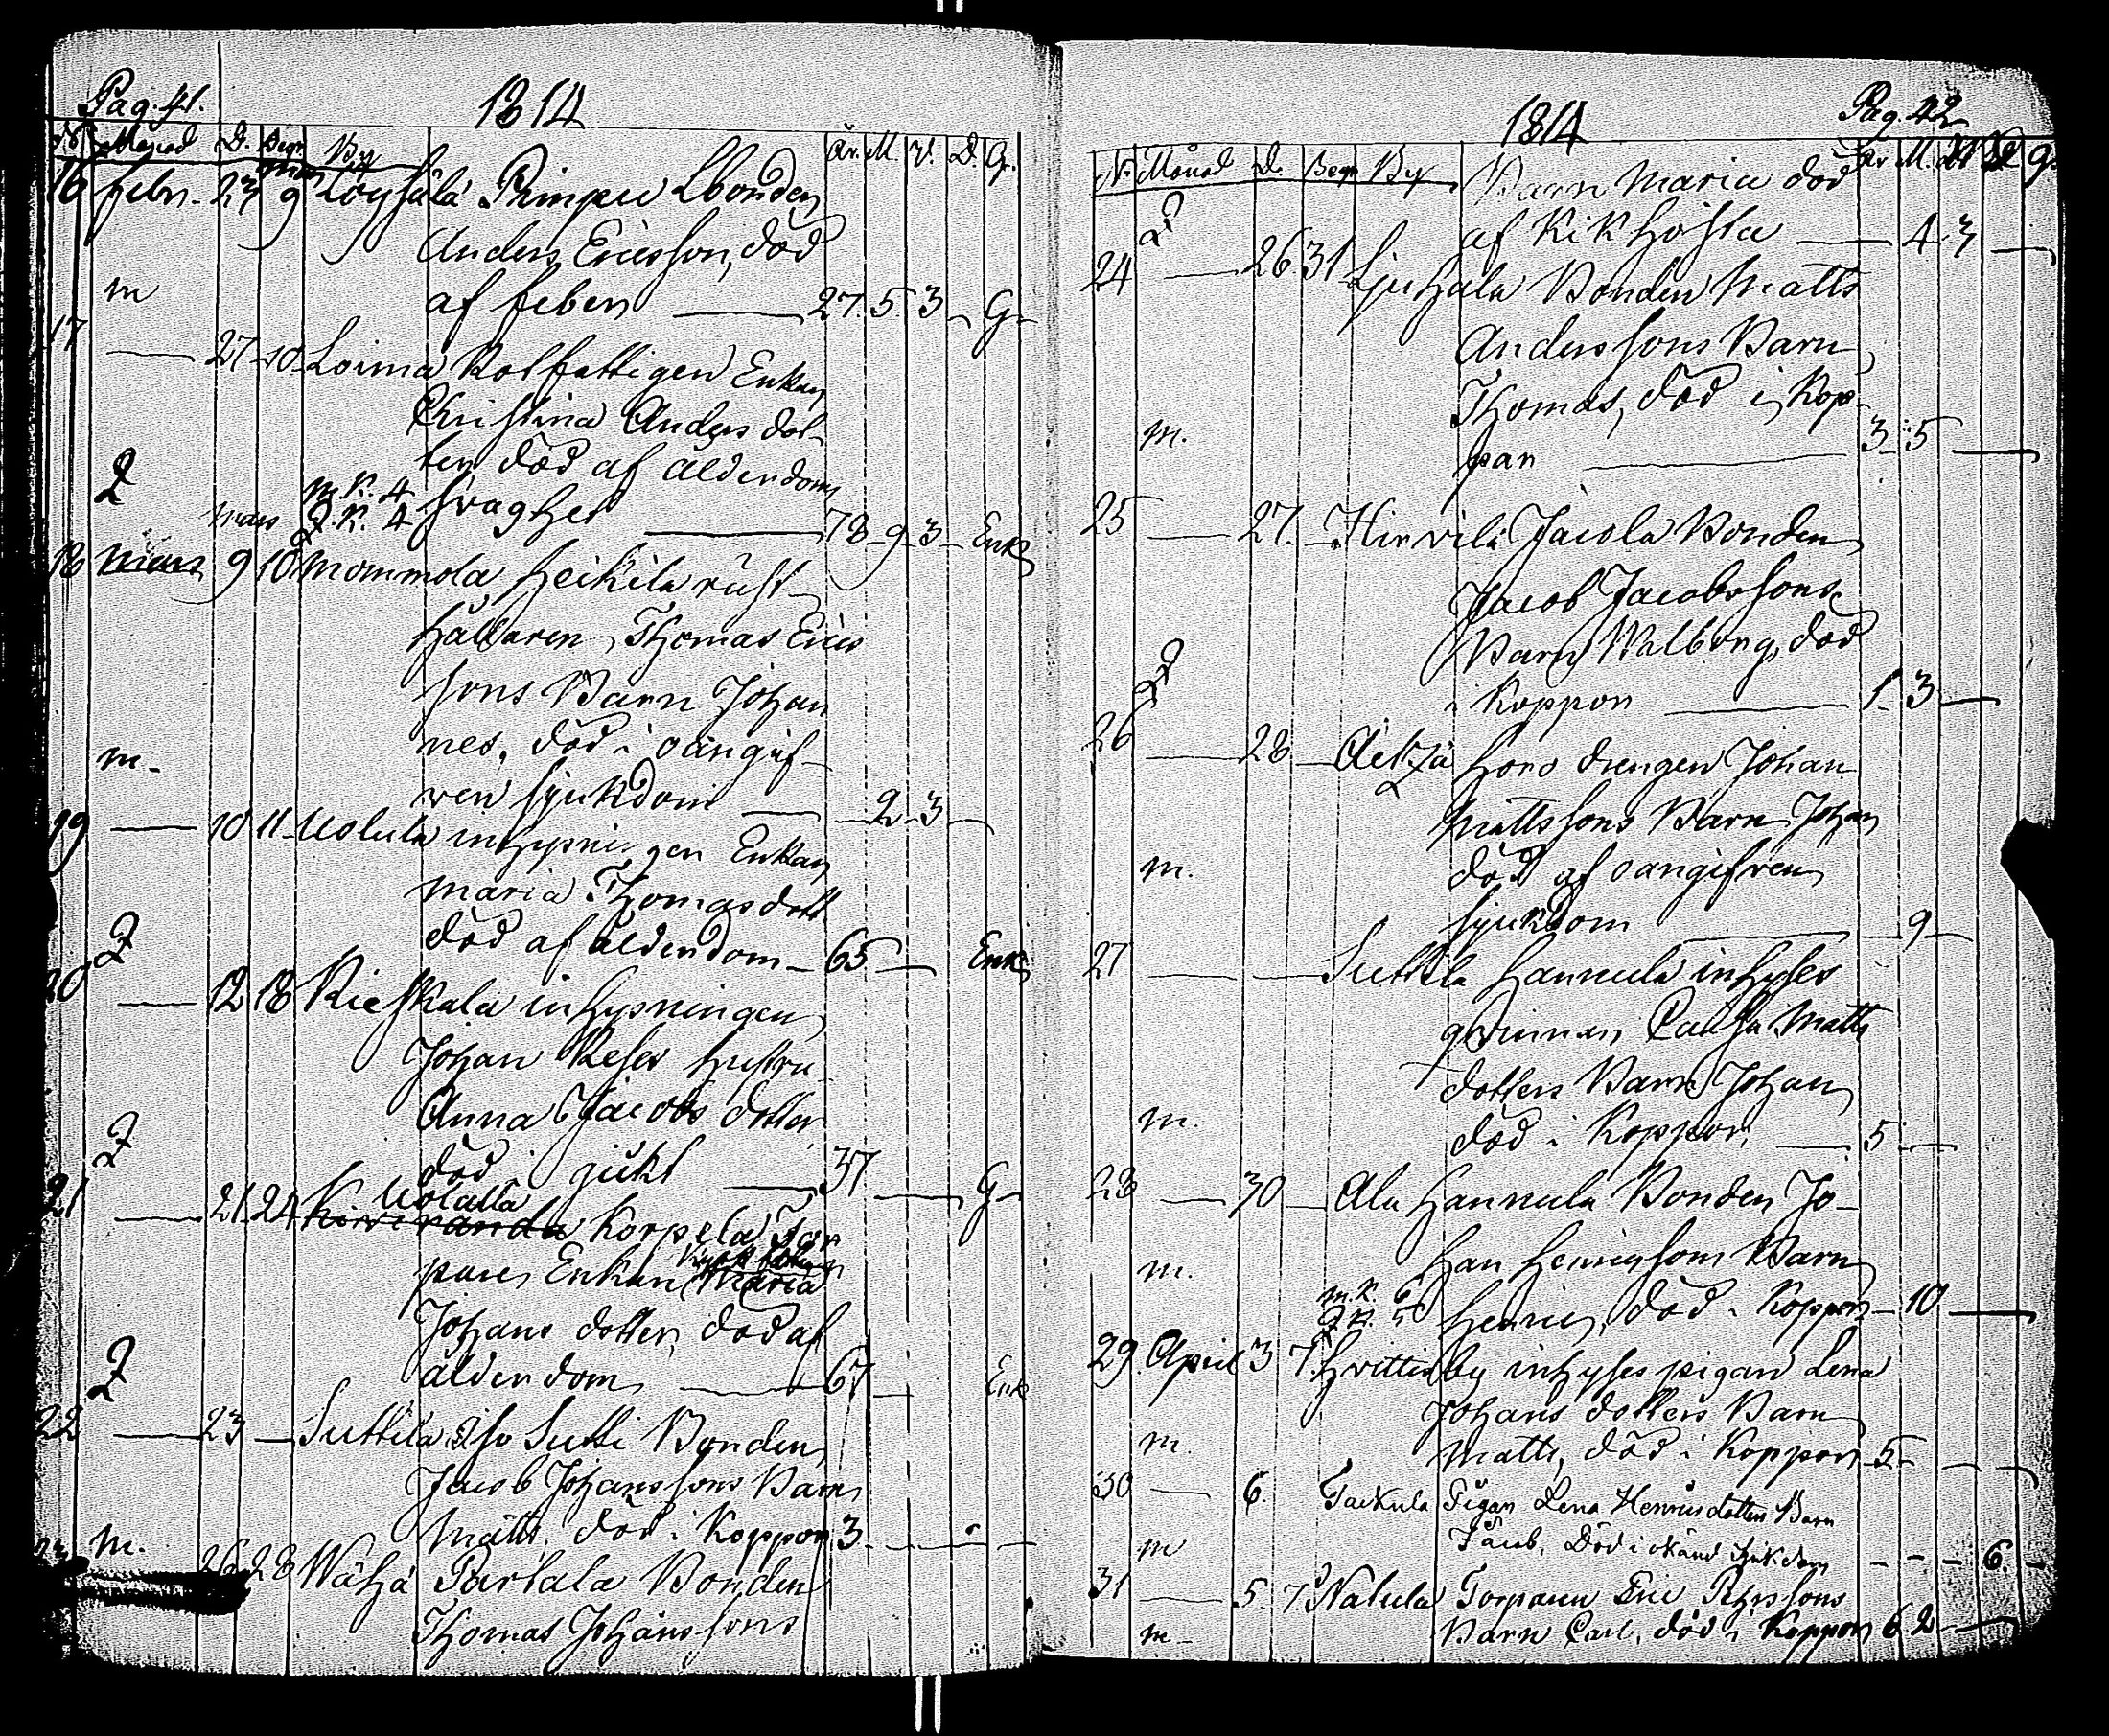 Pag. 41.
1814
No Månad D. Begr. By År. M. V. D. G.
16 febr. 23 9 Löyhälä Pimpu Lbonden
Anders Ericsson, död
m af feber 27. 5. 3 G
17 27 10 Loima Rotfattigen Enkan
Christina Anders dot-
ter död af ålderdoms
m. K. 4
Q. K. 4 svaghet 78 9 3 Enk
mars
18 Mars 9 10 Mommola Heikila rust-
hållaren Thomas Erics
sons Barn Johan
nes, död i oangif-
m. ven sjukdom 2 3
19 10 11 Uolula inhysningen Enkan
Maria Thomasdott
död af ålderdom 65 Enk
20 12 18 Rieskala inhysningen
Johan hustru
Anna Jacobs dotter
död i gikt 37 G
Uolalla
21 21 24 Korpela Tor
pare Enkan Maria
Johans dotter, död af
ålderdom 67 Enk
22 23 Suttila Iso Sutti Bonden
Jacob Johanssons Barn
m. Matts, död i Koppor 3
23 26 28 Wähä Partala Bonden
Thomas Johanssons
1814
Pag. 42
Nr Månad D. Begr By År M. G.
Barn Maria död
af Kikhosta 4 3
24 26 31 Ljuhala Bonden Matts
Anderssons Barn
Thomas, död i Kop-
m. por 3 5
25 27. Hirvilä Jacola Bonden
Jacob Jacobssons
Barn Walborg, död
i Koppor 1 3
26 28 Äetzä Horo drengen Johan
Mattssons Barn Johan
m. död af oangifven
sjukdom 9
27 Suttila Hannula inhyses
qvinnan Caisa Matts
dotters Barn Johan
m. död i Koppor 5
28 30 Ala Hannula Bonden Jo-
m. han Henrigsons Barn
m. K. 6
Q K. 5 Henric, död i Koppor 10
29 April 3 7 Hvittisby inhyses pigan Lena
Johans dotters Barn
m. Matts, död i Koppor 5
30 6. Taekula Pigan Lena Henrics dotters Barn
m Jacob, Död i okänd sjukdom 6
31 5 7 Natula Torparen Eric Pehrssons
m Barn Carl, död i Koppor 6 2